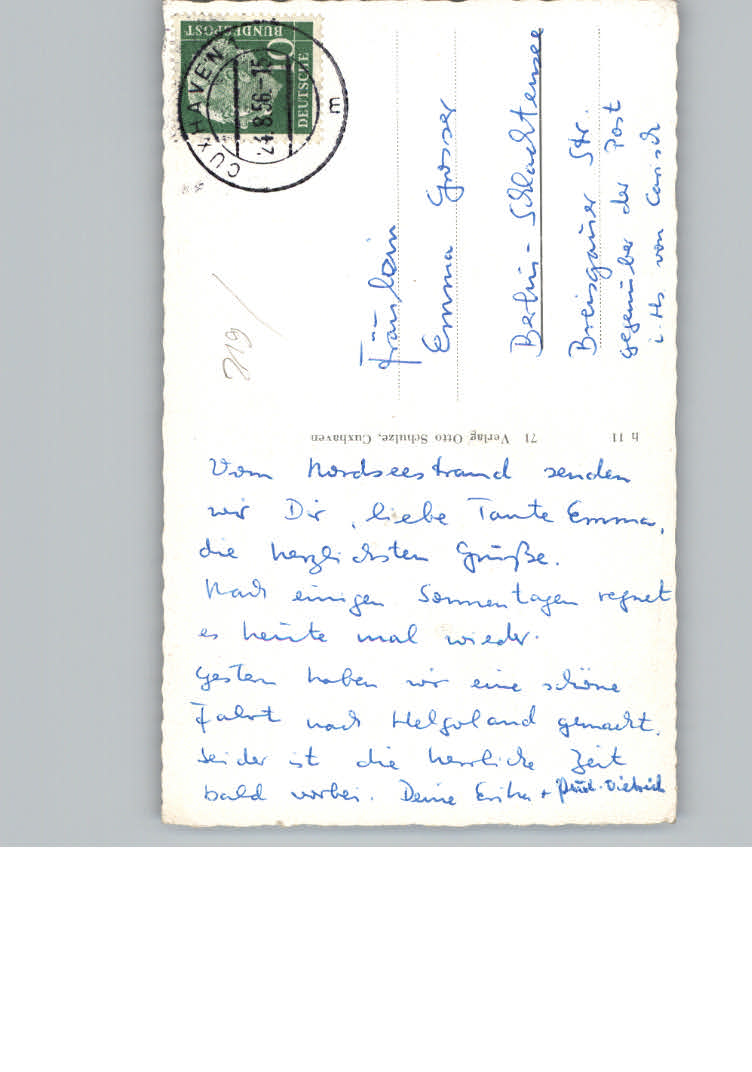 DEUTSCHE
BUNDESPOST
10
CUXHAVEN
24.8.56-15
m
719
Fräulein
Emma
Berlin-Schlachtensee
Breisgauer Str.
gegenüber der Post
i. Hs von
h 11 71 Verlag Otto Schulze, Cuxhaven
Vom Nordseestrand senden
wir Dir, liebe Tante Emma,
die herzlichsten Grüße.
Nach einigen Sonnentagen regnet
es heute mal wieder.
Gestern haben wir eine schöne
Fahrt nach Helgoland gemacht.
Leider ist die herrliche Zeit
bald vorbei. Deine Erika +